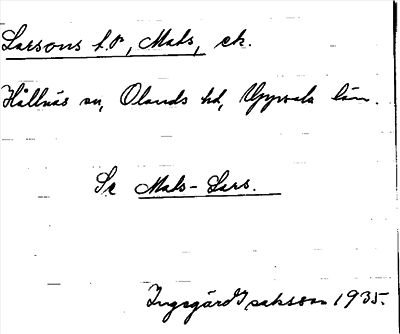 Larsons t.o, Mats, ek.
Hållnäs sn, Olands hd, Uppsala län.
Se Mats-Lars.
Ingegärd Isaksson 1935.